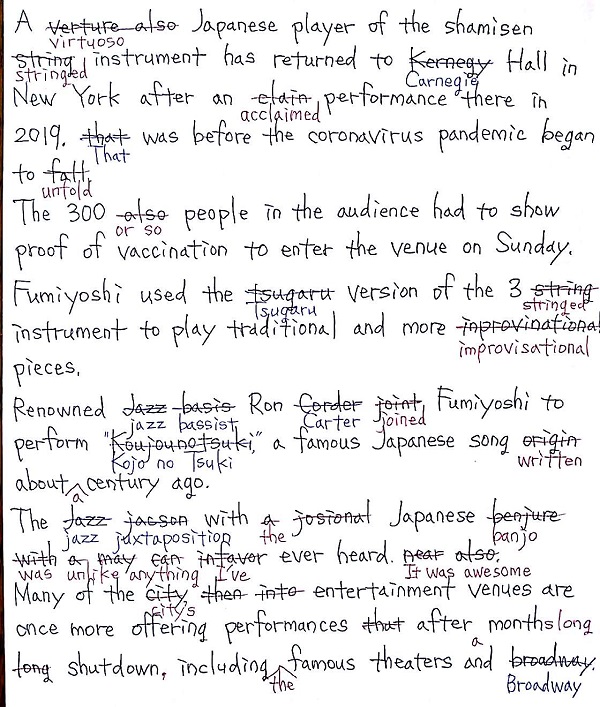 A verture also Japanese player of the shamisen
virtuoso
string instrument has returned to Kernegy Hall in
stringed Carnegie
New York after an clain performance there in
acclaimed
2019. that was before the coronavirus pandemic began
That
to fall.
unfold
The 300 also people in the audience had to show
or so
proof of vaccination to enter the venue on Sunday.
Fumiyoshi used the tsugaru version of the 3 string
Tsugaru stringed
instrument to play traditional and more inprovinational
improvisational
pieces.
Renowned Jazz basis Ron Corder joint, Fumiyoshi to
jazz bassist Carter joined
perform "Koujounotsuki," a famous Japanese song origin
Kojo no Tsuki written
about century ago.
a
The Jazz jacson with a josional Japanese benjure
jazz juxtaposition the banjo
with a may can infavor ever heard. near also.
was unlike anything I've It was awesome
Many of the city, then into entertainment venues are
city's
once more offering performances that after months long
a
long shutdown, including famous theaters and broadway.
the Broadway